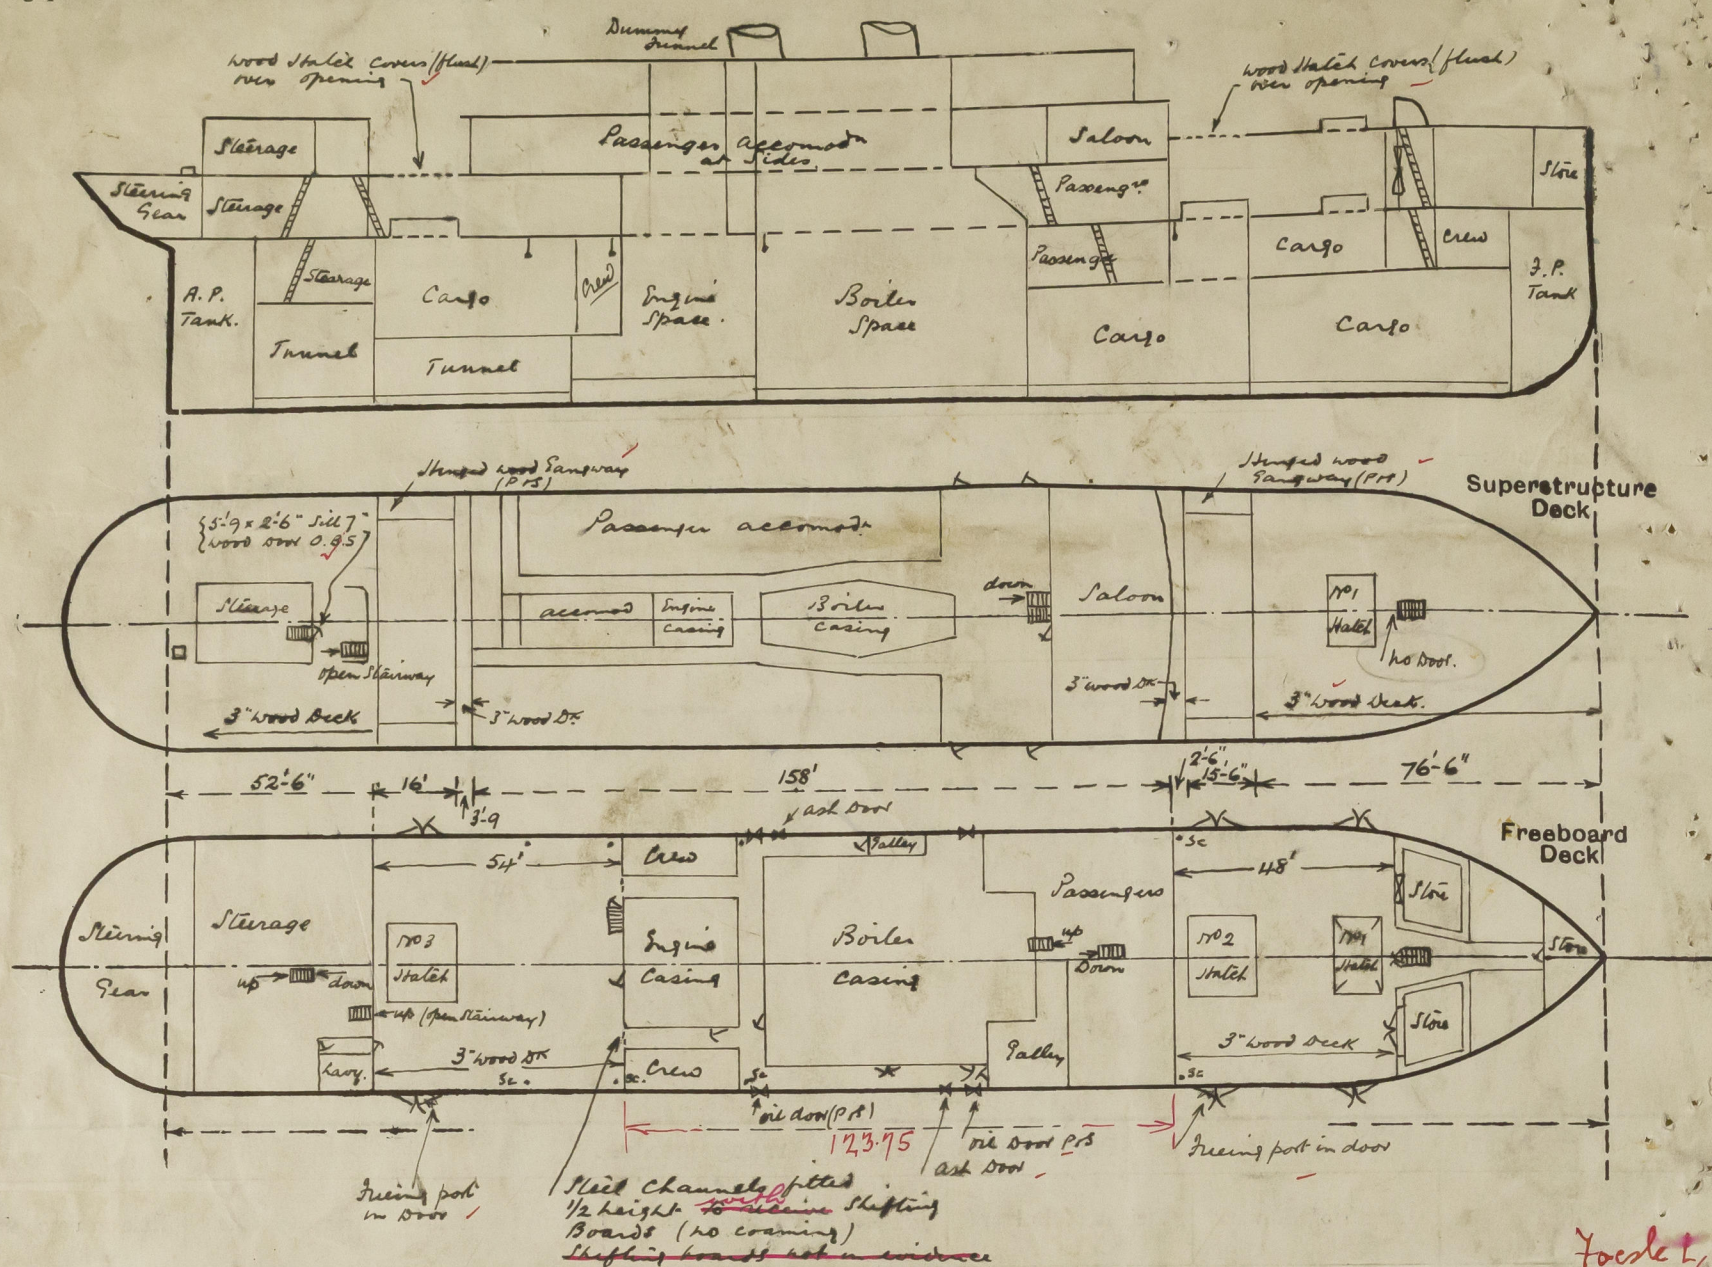 Dummy
Funnel
Wood Hatch Covers (flush)
over opening
Wood Hatch Covers (flush)
over opening
Steerage
Passenger accomodn
at Sides
Saloon
Steering
Gear
Steerage
Passengrs
Store
Steerage
Cargo
Crew
Engine
Space.
Boiler
Space
Passengr
Cargo
Crew
A.P.
Tank.
F.P.
Tank
Tunnel
Tunnel
Cargo
Cargo
Hinged wood Gangway
(P&S)
Hinged wood
Gangway (P&S)
Superstructure
Deck
5'-9 x 2'-6" Sill 7"
Wood Door
Passenger accomodn
Steerage
accomod
Engine
Casing
Boiler
Casing
down
Saloon
No 1
Hatch
No Door.
open Stairway
3" Wood Deck
3" Wood Dk
3" Wood Dk
3" Wood Deck.
52'-6"
16'
3'-9
158'
2'-6"
15'-6"
76'-6"
ash Door
Freeboard
Deck
54'
Crew
Galley
Sc
48'
Passengers
Store
Steering
Gear
Steerage
No 3
Hatch
Engine
Casing
Boiler
Casing
up
Down
No 2
Hatch
No 1
Hatch
Store
up
down
up (open Stairway)
Lavy.
3" Wood Dk
Sc.
Sc.
Crew
Sc
Galley
3" Wood Deck
Store
Sc
oil door (P&S)
123.75
oil Door P&S
ash Door
Freeing port in door
Freeing port
in Door
Steel Channels fitted
1/2 height to receive with Shifting
Boards (no coaming)
Shifting boards not in evidence